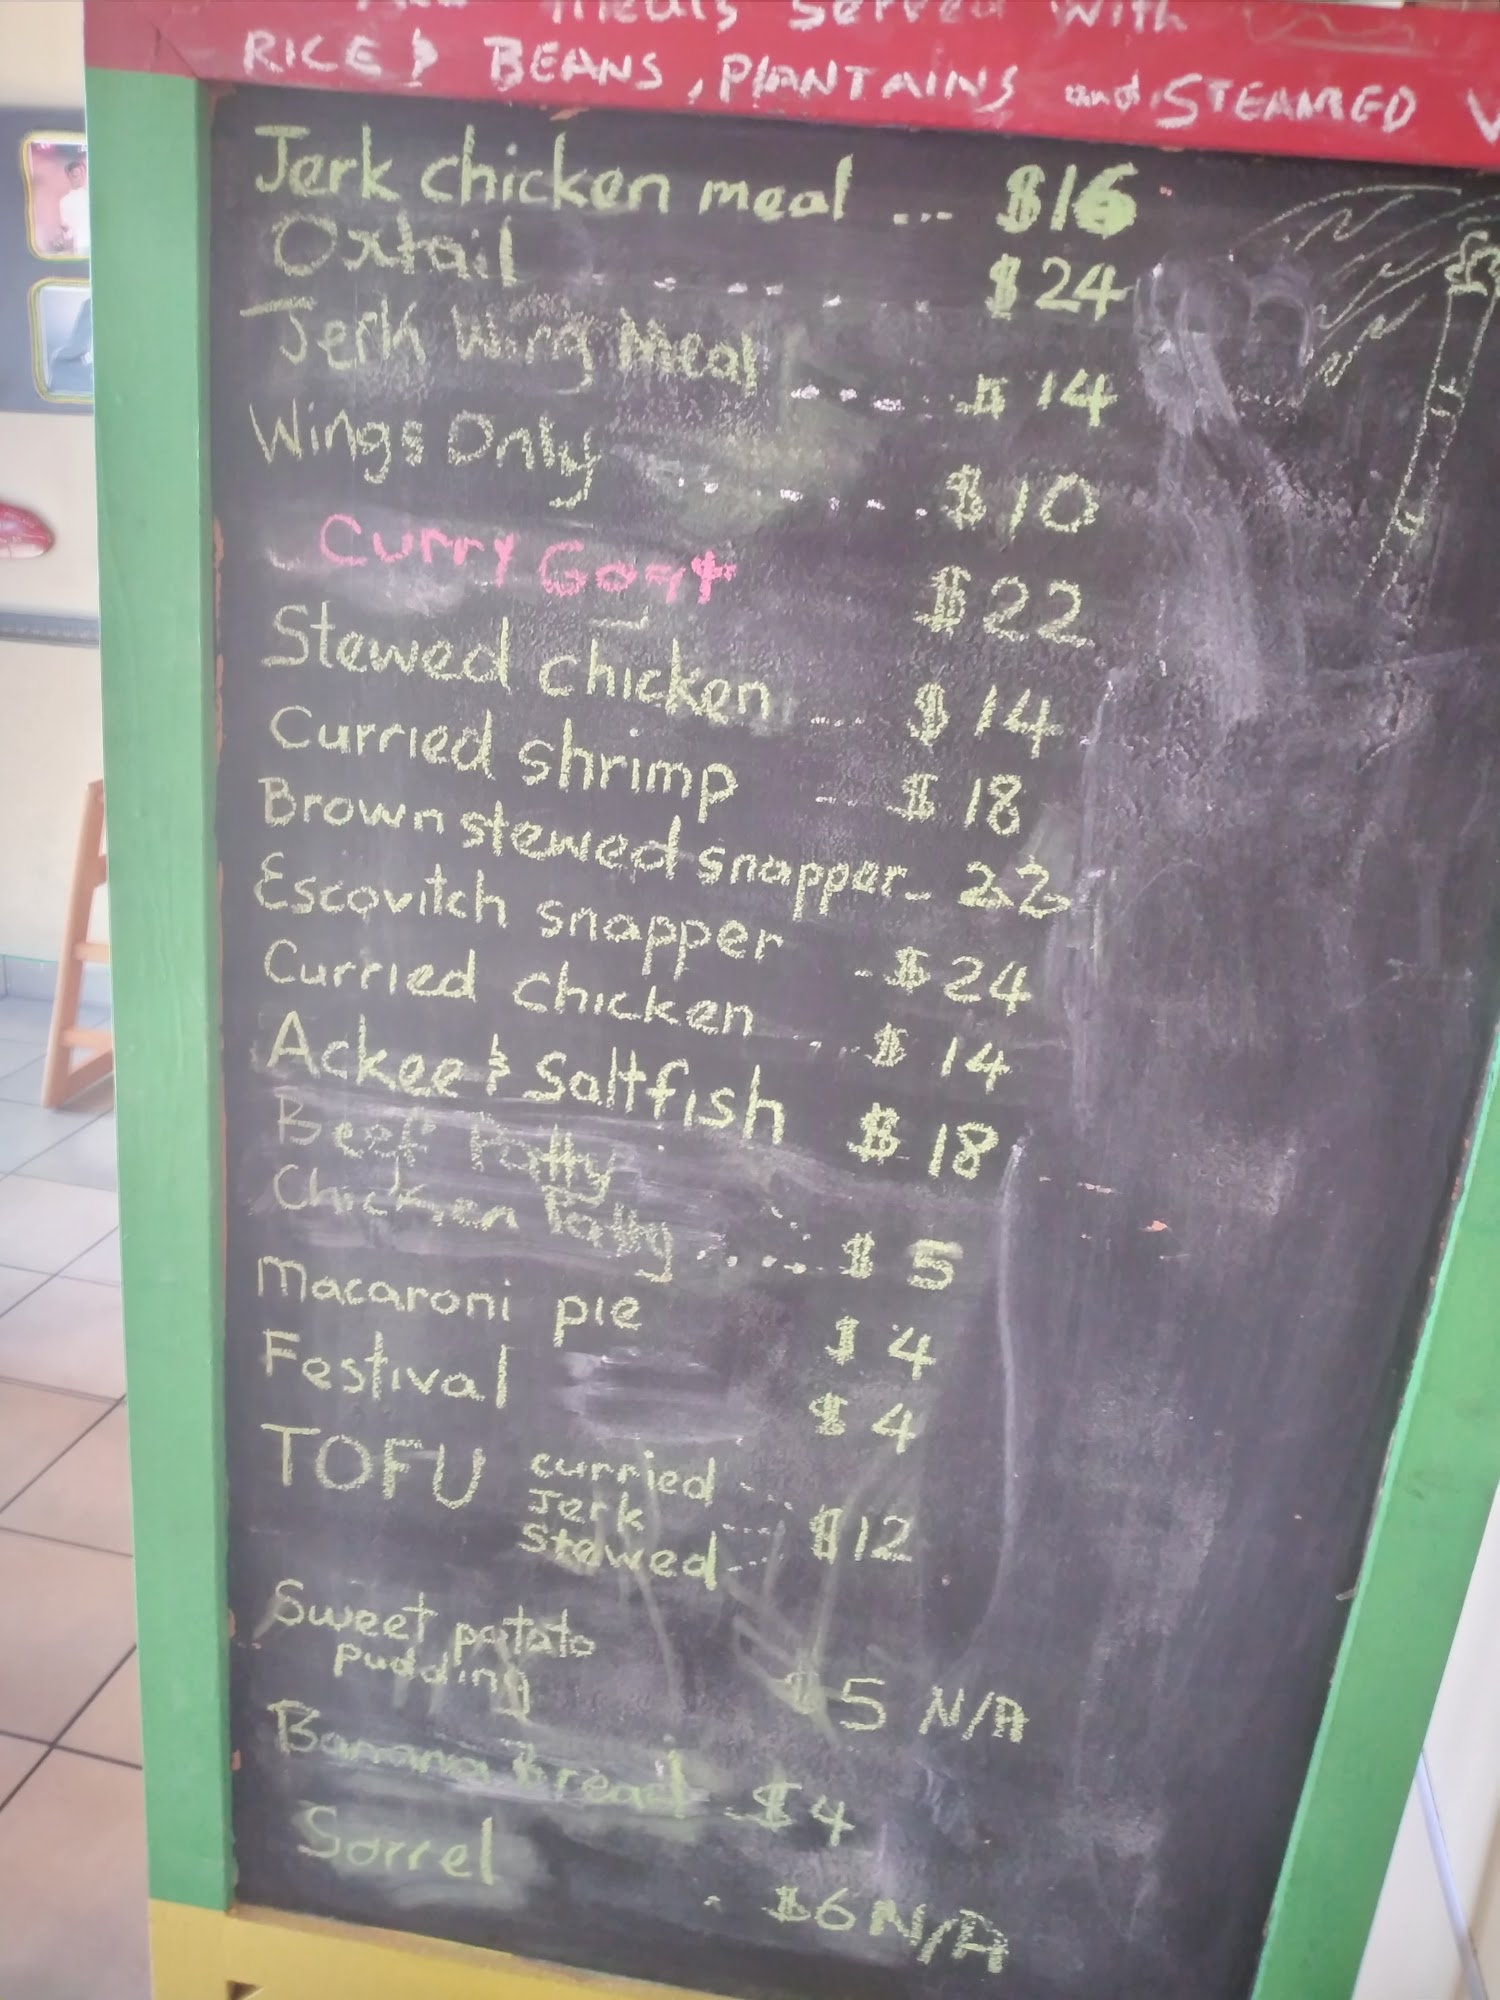 meals served with
RICE & BEANS, PLANTAINS and STEAMED
Jerk chicken meal ... $16
Oxtail ..... $24
Jerk Wing Meal ..... $14
Wings Only ...... $10
Curry Goat $22
Stewed chicken ... $14
Curried shrimp -- $18
Brown stewed snapper-- 22
Escovitch snapper -$24
Curried chicken ... $14
Ackee & Saltfish $18
Beef Patty
Chicken Patty ..... $5
Macaroni pie $4
Festival $4
TOFU curried ...
Jerk ... $12
Stewed...
Sweet potato
pudding $5 N/A
Banana Bread $4
Sorrel - $6 N/A